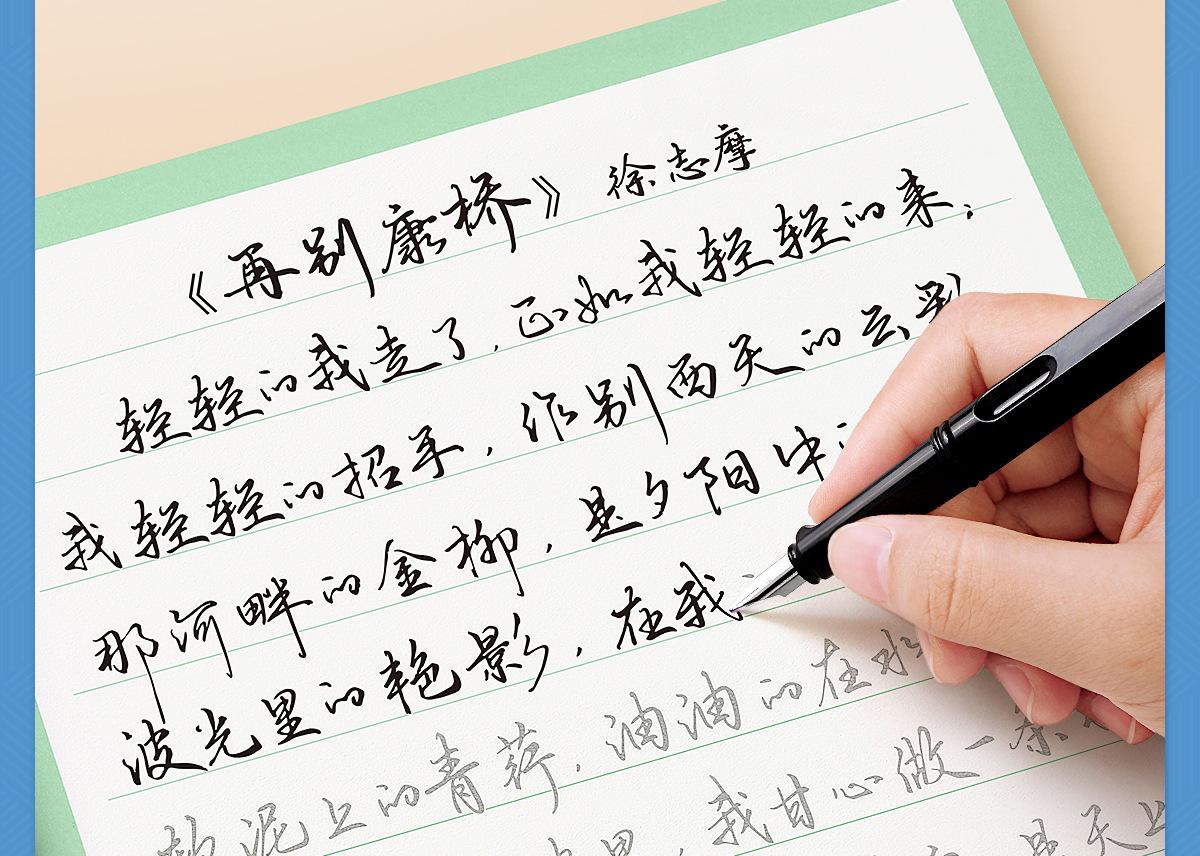 《再别康桥》 徐志摩
轻轻的我走了，正如我轻轻的来；
我轻轻的招手，作别西天的云彩
那河畔的金柳，是夕阳中
波光里的艳影，在我
软泥上的青荇，油油的在水
里，我甘心做一条
是天上